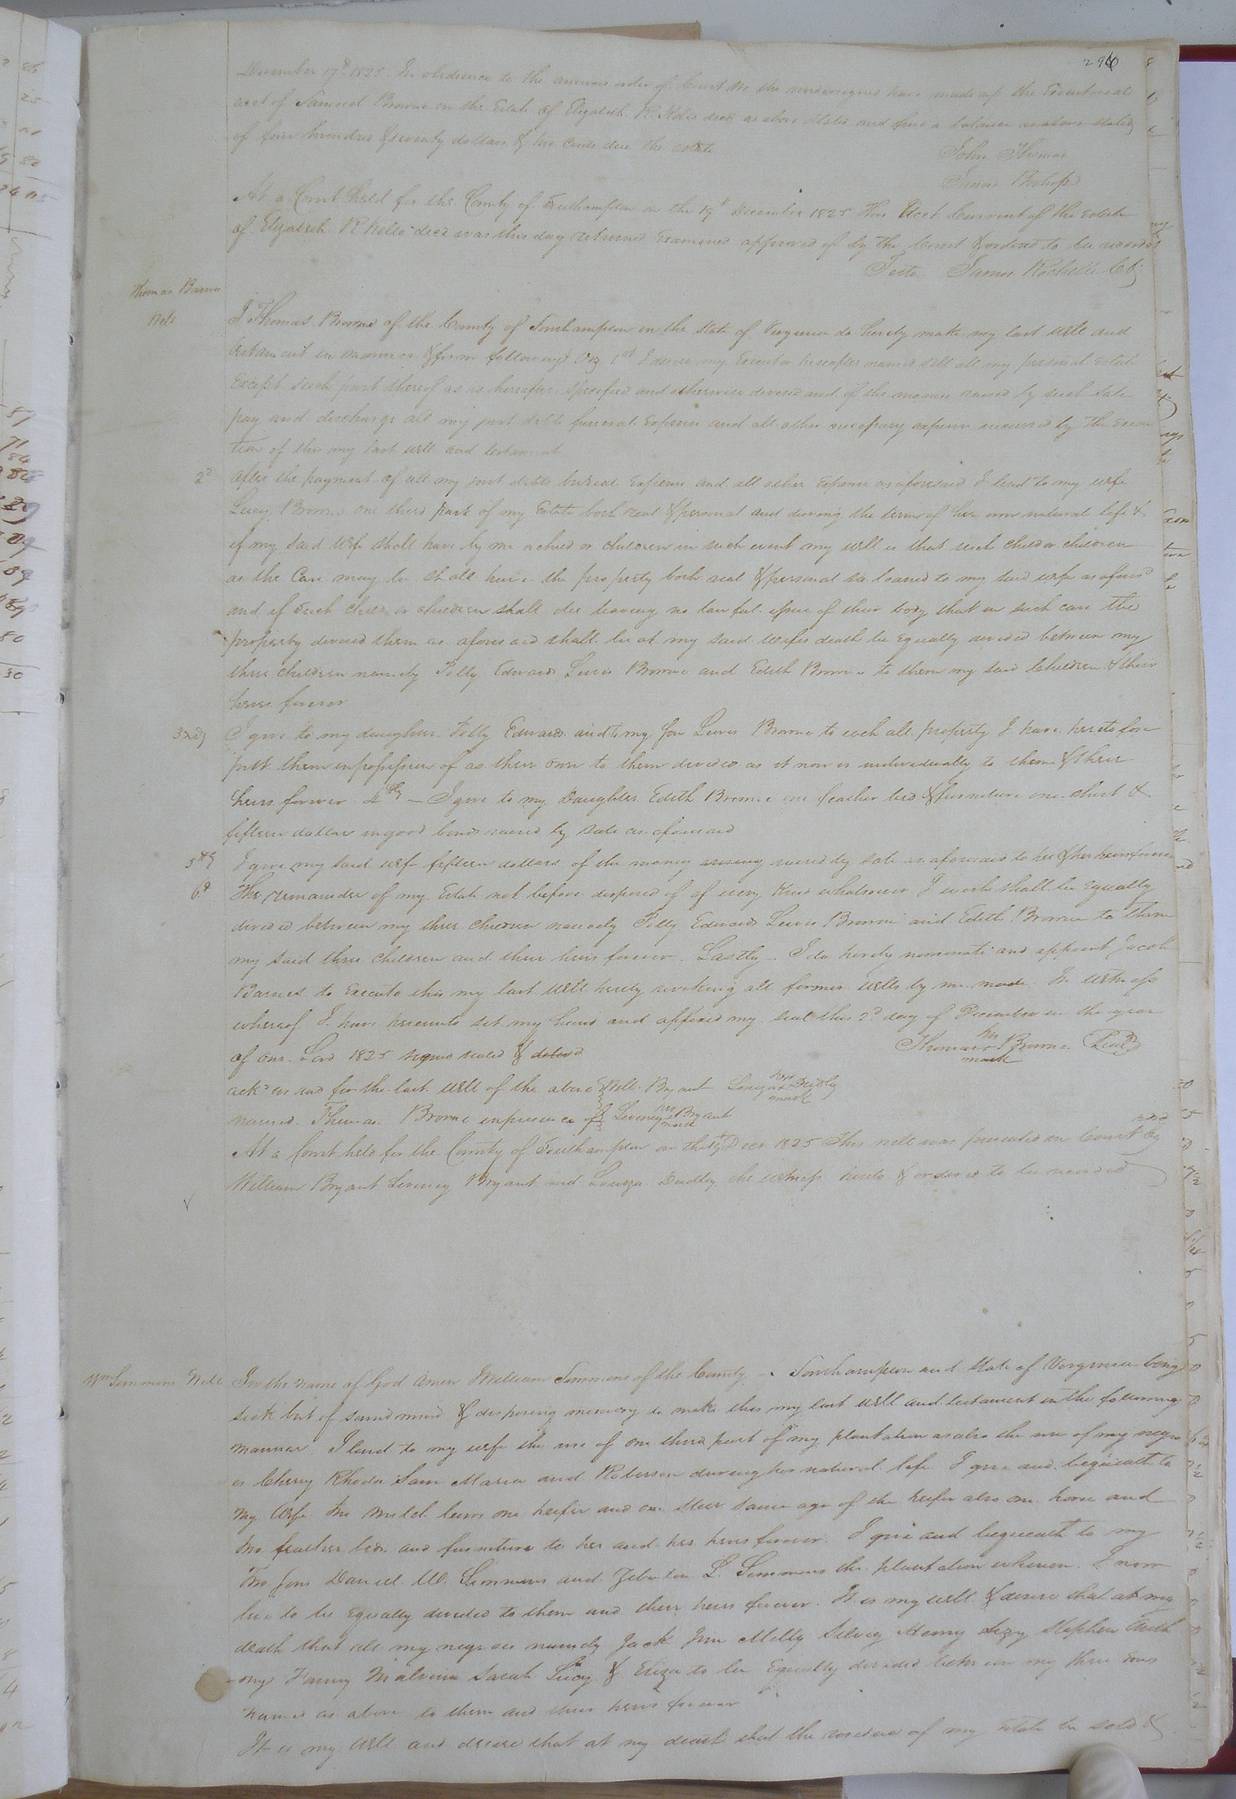 296
December 19th 1825. In obedience to the annexed order of Court We the undersigned have made up the Executorial
acct of Samuel Browne on the Estate of Elizabeth R Kello decd as above stated and find a balance as above stated
of four hundred & seventy dollars & two cents due the estate
John Thomas
James Bishop
At a Court held for the County of Southampton on the 19th December 1825 This Acct Current of the estate
of Elizabeth R Kello decd was this day returned Examined approved of by the Court & ordered to be recorded
Teste James Rochelle Ck
Thomas
Will
I Thomas Browne of the County of Southampton in the State of Virginia do hereby make my last will and
testament in manner & form following Viz 1st I desire my Executor hereafter named sell all my personal estate
Except such part thereof as is hereafter specified and otherwise devised and of the monies raised by such sale
pay and discharge all my just debts funeral Expences and all other necessary expences incurred by the Execu
tion of this my last will and testament
2d After the payment of all my just debts burial Expences and all other Expences as aforesaid I lend to my wife
Lucy Browne one third part of my Estate both real & personal and during the term of her own natural life &
if my said wife shall have by me a child or children in such event my will is that such child or children
as the Case may be shall have the property both real & personal so loaned to my said wife as aforesd
and if such child or children shall die leaving no lawful issue of their body that in such case the
property devised them as aforesaid shall be at my said wifes death be Equally devided between my
three children namely Polly Edwards Lewis Browne and Edith Browne to them my said Children & their
heirs forever
3rdly I give to my daughter Polly Edwards and to my son Lewis Browne to each all property I have heretofore
put them in possession of as their own to them devided as it now is individually to them & their
heirs forever 4thly I give to my Daughter Edith Browne one feather bed & furniture one chest &
fifteen dollars in good bonds raised by sale as aforesaid
5thly I give my said wife fifteen dollars of the money arising raised by sale as aforesaid to her & her heirs forever
6th The remainder of my Estate not before disposed of of every kind whatsoever I wish shall be Equally
devided between my three children namely Polly Edwards Lewis Browne and Edith Browne to them
my said three children and their heirs forever. Lastly I do hereby nominate and appoint Jacob
Barnes to Execute this my last will hereby revoking all former wills by me made. In witness
whereof I have hereunto set my hand and affixed my seal this 2d day of December in the year
of our Lord 1825 signed sealed &
his
Thomas Browne Seal
mark
ackd as and for the last will of the above Will Bryant Louiza Dudley
his mark
named Thomas Browne in presence of Leviney Bryant
mark
At a Court held for the County of Southampton on the 19th Decr 1825 This will was presented in Court
William Bryant Leviney Bryant and Louiza Dudley the witness hereto & ordered to be recorded
Wm Simmons Will
In the name of God Amen I William Simmons of the County Southampton and State of Virginia being
sick but of sound mind & disposing memory do make this my last will and testament in the following
manner. I lend to my wife the use of one third part of my plantation as also the use of my negro
es Cherry Rhoda Sam Maria and Roberson during her natural life I give and bequeath to
my wife two milch cows one heifer and one steer same age of the heifer also one horse and
two feather beds and furniture to her and her heirs forever. I give and bequeath to my
Two sons David W. Simmons and L. Simmons the plantation whereon I now
live to be Equally devided to them and their heirs forever. It is my will & desire that at my
death that all my negroes namely Jack Jim Milly Silvey Henry Lizzy Stephen
Fanny Malvina Sarah Lucy & Eliza to be Equally devided between my three sons
named as above to them and their heirs forever
It is my Will and desire that at my death that the residue of my estate be sold &